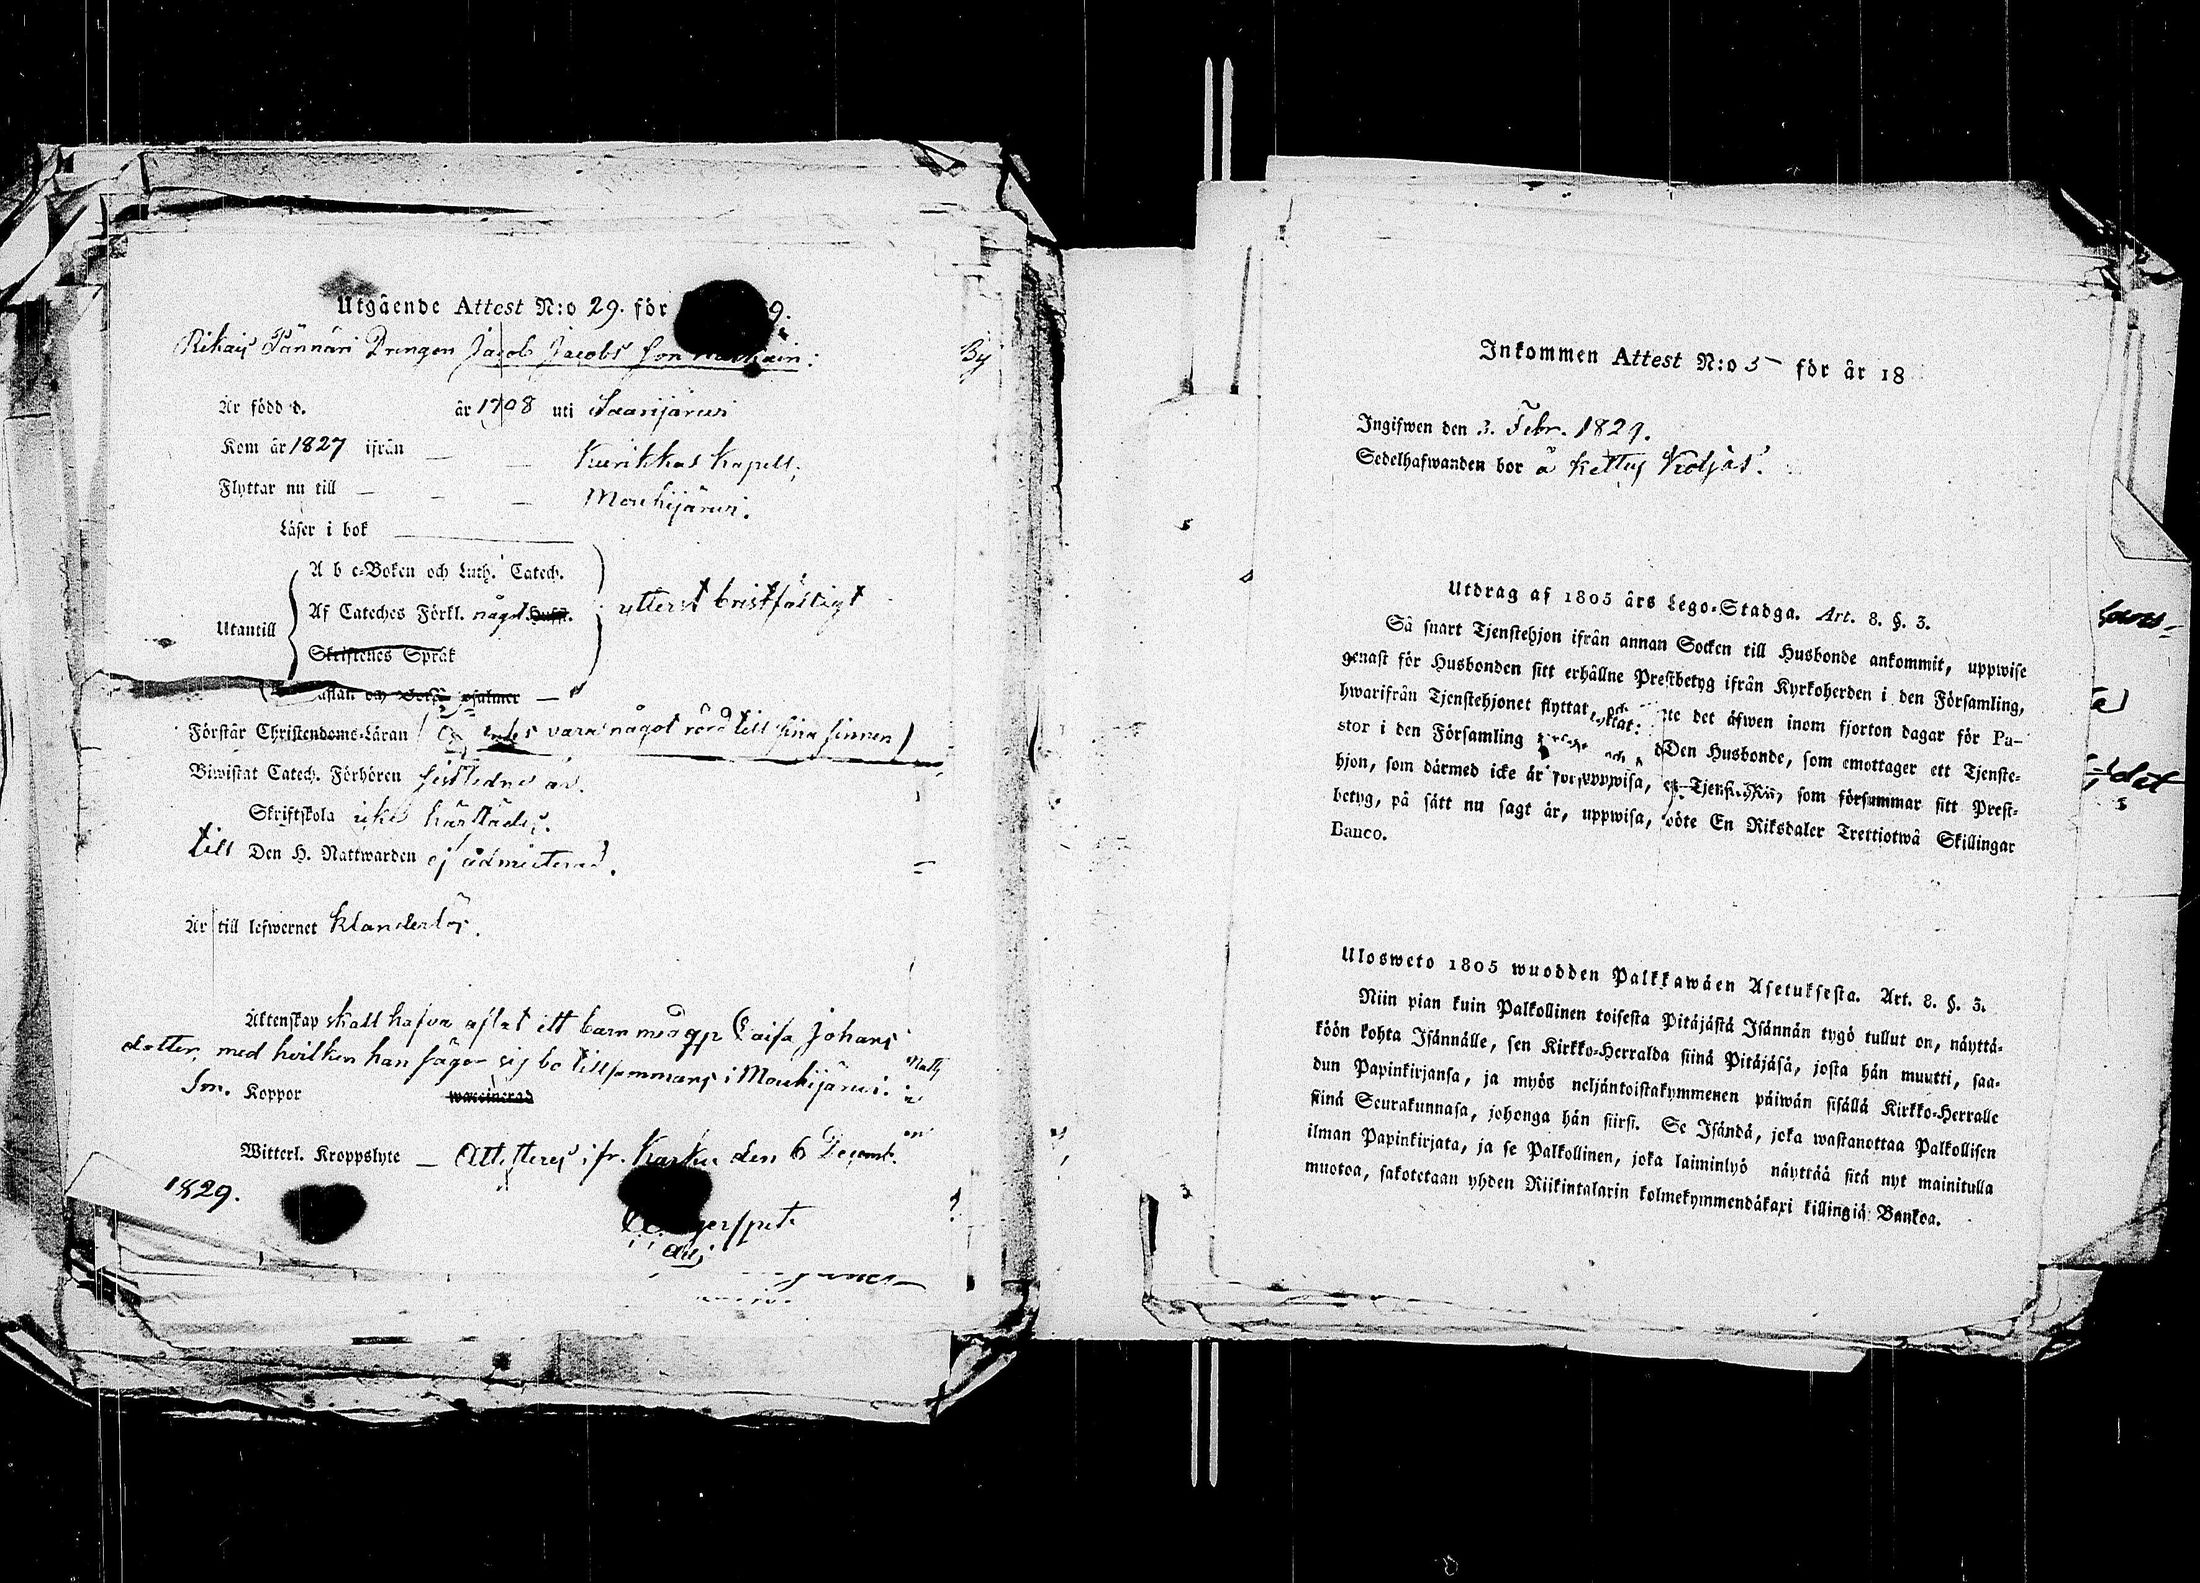 Utgående Attest N:o 29. för 9.
Rikais Pännäri Drengen Jacob Jacobs son
Är född d. år 1708 uti Saarijärwi
Kom år 1827 ifrån — — Kurikkas Kapell.
Flyttar nu till — — — Mouhijärwi.
Läser i bok
A b c-Boken och Luth. Catech.
Af Cateches Förkl. något Hust.
ytterst bristfälligt
Utantill
Skriftenes Språk
psalmer —
Förstår Christendoms-Läran vara något rörd till sina sinnen)
Biwistat Catech. Förhören sistledne år.
Skriftskola icke härstädes.
till Den H. Nattwarden ej admitterad.
Är till lefwernet klanderlös.
Äktenskap skall hafva aflat ett barn med qp Caisa Johans
dotter, med hvilken han säger sig bo tillsammans i Mouhijärvi.
Sm. Koppor waccinerad
Witterl. Kroppslyte — Attesteras i fr. Karku den 6 Decemb.
1829.
Adj
By
Inkommen Attest N:o 5 för år 18
Ingifwen den 3. Febr. 1829.
Sedelhafwanden bor å
Utdrag af 1805 års Lego-Stadga. Art. 8. §. 3.
Så snart Tjenstehjon ifrån annan Socken till Husbonde ankommit, uppwise
genast för Husbonden sitt erhållne Prestbetyg ifrån Kyrkoherden i den Församling,
hwarifrån Tjenstehjonet flyttat, det äfwen inom fjorton dagar för Pa-
stor i den Församling Den Husbonde, som emottager ett Tjenste-
hjon, som därmed icke är uppwisa, som försummar sitt Prest-
betyg, på sätt nu sagt är, uppwisa, böte En Riksdaler Trettiotwå Skillingar
Banco.
Ulosweto 1805 wuodden Palkkawäen Asetuksesta. Art. 8. §. 3.
Niin pian kuin Palkollinen toisesta Pitäjästä Isännän tygö tullut on, näyttä-
köön kohta Isännälle, sen Kirkko-Herralda siinä Pitäjäsä, josta hän muutti, saa-
dun Papinkirjansa, ja myös neljäntoistakymmenen päiwän sisällä Kirkko-Herralle
siinä Seurakunnasa, johonga hän siirsi. Se Isändä, joka wastanottaa Palkollisen
ilman Papinkirjata, ja se Palkollinen, joka laiminlyö näyttää sitä nyt mainitulla
muotoa, sakotetaan yhden Riikintalarin kolmekymmendäkaxi killingiä Bankoa.